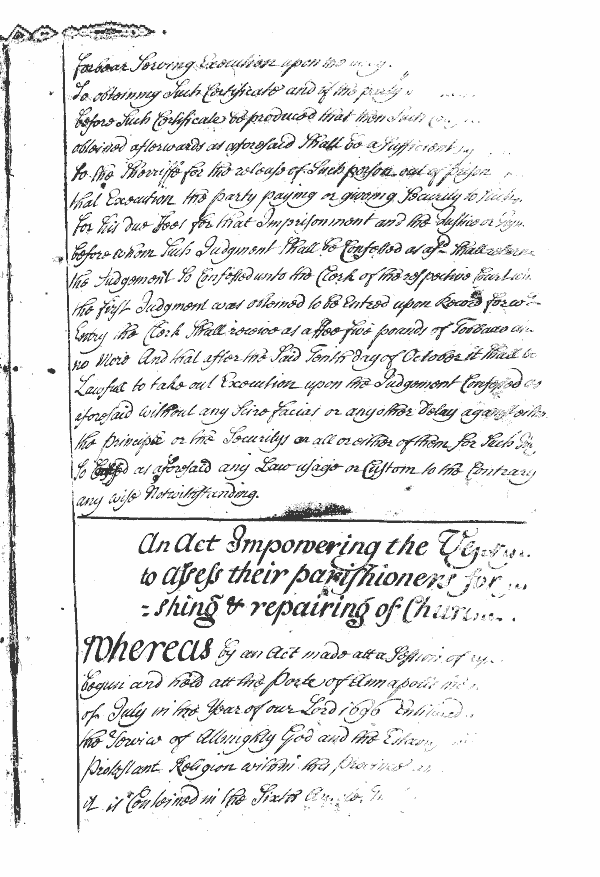 forbear Serving Execution upon the
So obteining Such Certificate and if the party
before Such Certificate be produced that then Such
obteined afterwards as aforesaid Shall be a Sufficient
to the Sherriffe for the release of Such person out of prison
that Execution the party paying or giveing Security to Such
for his due Fees for that Imprisonment and the Justice or
before whom Such Judgment Shall be Confessed as afsd Shall returne
the Judgement So Confessed unto the Clerk of the respective Court
the first Judgment was obteined to be Entred upon Record for wch
Entry the Clerk Shall receive as a ffee five pounds of Tobacco and
no More And that after the Said Tenth day of October it Shall be
Lawful to take out Execution upon the Judgement Confessed as
aforesaid without any Scire facias or any other Delay against either
the principle or the Securitys or all or either of them for Such
So as aforesaid any Law usage or Custom to the Contrary
any wise Notwithstanding.
An Act Impowering the
to assess their parishioners for
=shing & repairing of
Whereas by an Act made att a Session of
begun and held att the Porte of Annapolis the
of July in the Year of our Lord 1696 Entituled
the Service of Almighty God and the
Protestant Religion within this Province
it is Conteined in the Sixth